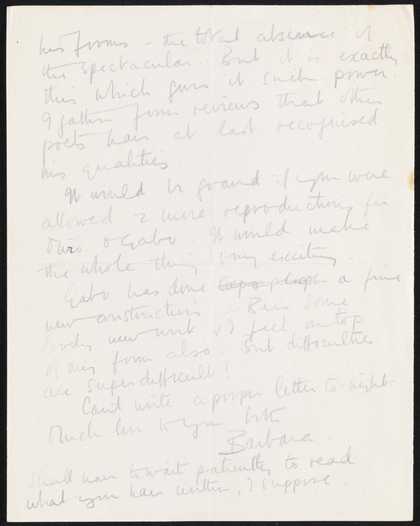 his forms – the total absence of
the spectacular. But it is exactly
this which gives it such power.
I gather from reviews that other
poets have at last recognised
his qualities
It would be grand if you were
allowed 2 more reproductions for
& Gabo. It would make
the whole thing v. exciting.
Gabo has done a fine
new construction Ben some
lovely new work & I feel on top
of my form also. But difficulties
are superdifficult!
Can't write a proper letter to-night.
Much love to you both
Barbara.
Shall have to wait patiently to read
what you have written, I suppose.